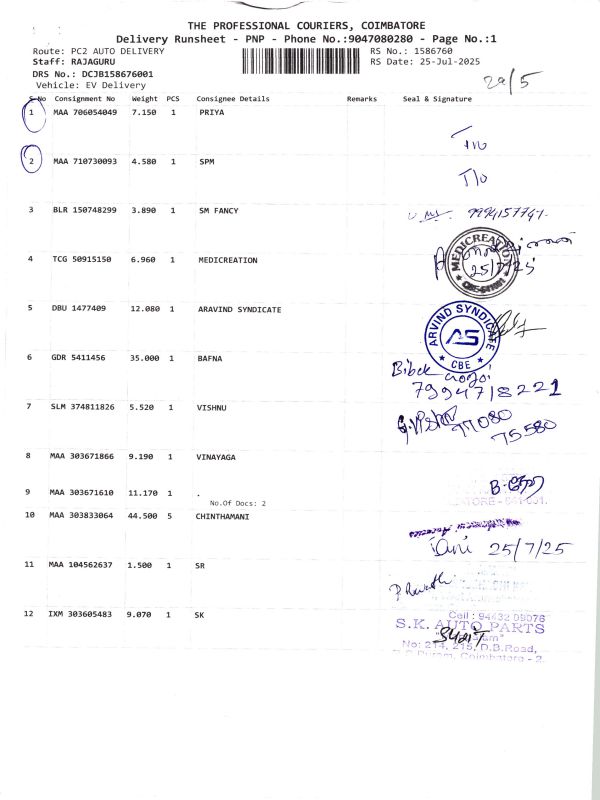 THE PROFESSIONAL COURIERS, COIMBATORE
Delivery Runsheet - PNP - Phone No.:9047080280 - Page No.:1
Route: PC2 AUTO DELIVERY RS No.: 1586760
Staff: RAJAGURU RS Date: 25-Jul-2025
DRS No.: DCJB158676001
Vehicle: EV Delivery
29/5
S-No Consignment No Weight PCS Consignee Details Remarks Seal & Signature
1 MAA 706054049 7.150 1 PRIYA
2 MAA 710730093 4.580 1 SPM
T/O
3 BLR 150748299 3.890 1 SM FANCY
4 TCG 50915150 6.960 1 MEDICREATION
MEDICREATION
25/7/25
5 DBU 1477409 12.080 1 ARAVIND SYNDICATE
ARVIND SYNDICATE
AS
CBE
6 GDR 5411456 35.000 1 BAFNA
Bibek Gogoi
7994718221
7 SLM 374811826 5.520 1 VISHNU
77080
75580
8 MAA 303671866 9.190 1 VINAYAGA
9 MAA 303671610 11.170 1 .
No.Of Docs: 2
10 MAA 303833064 44.500 5 CHINTHAMANI
25/7/25
11 MAA 104562637 1.500 1 SR
12 IXM 303605483 9.070 1 SK
Cell : 94432 09076
S.K. AUTO PARTS
No: 214, 215, D.B.Road,
Coimbatore - 2.